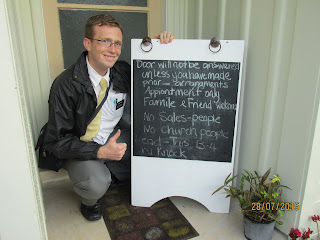 Door will not be answered
unless you have made
prior - arrangaments
Appiontment only
Familie & Friend welcome
No Sales-people
No Church people
This is a
No Knock
28/07/2013